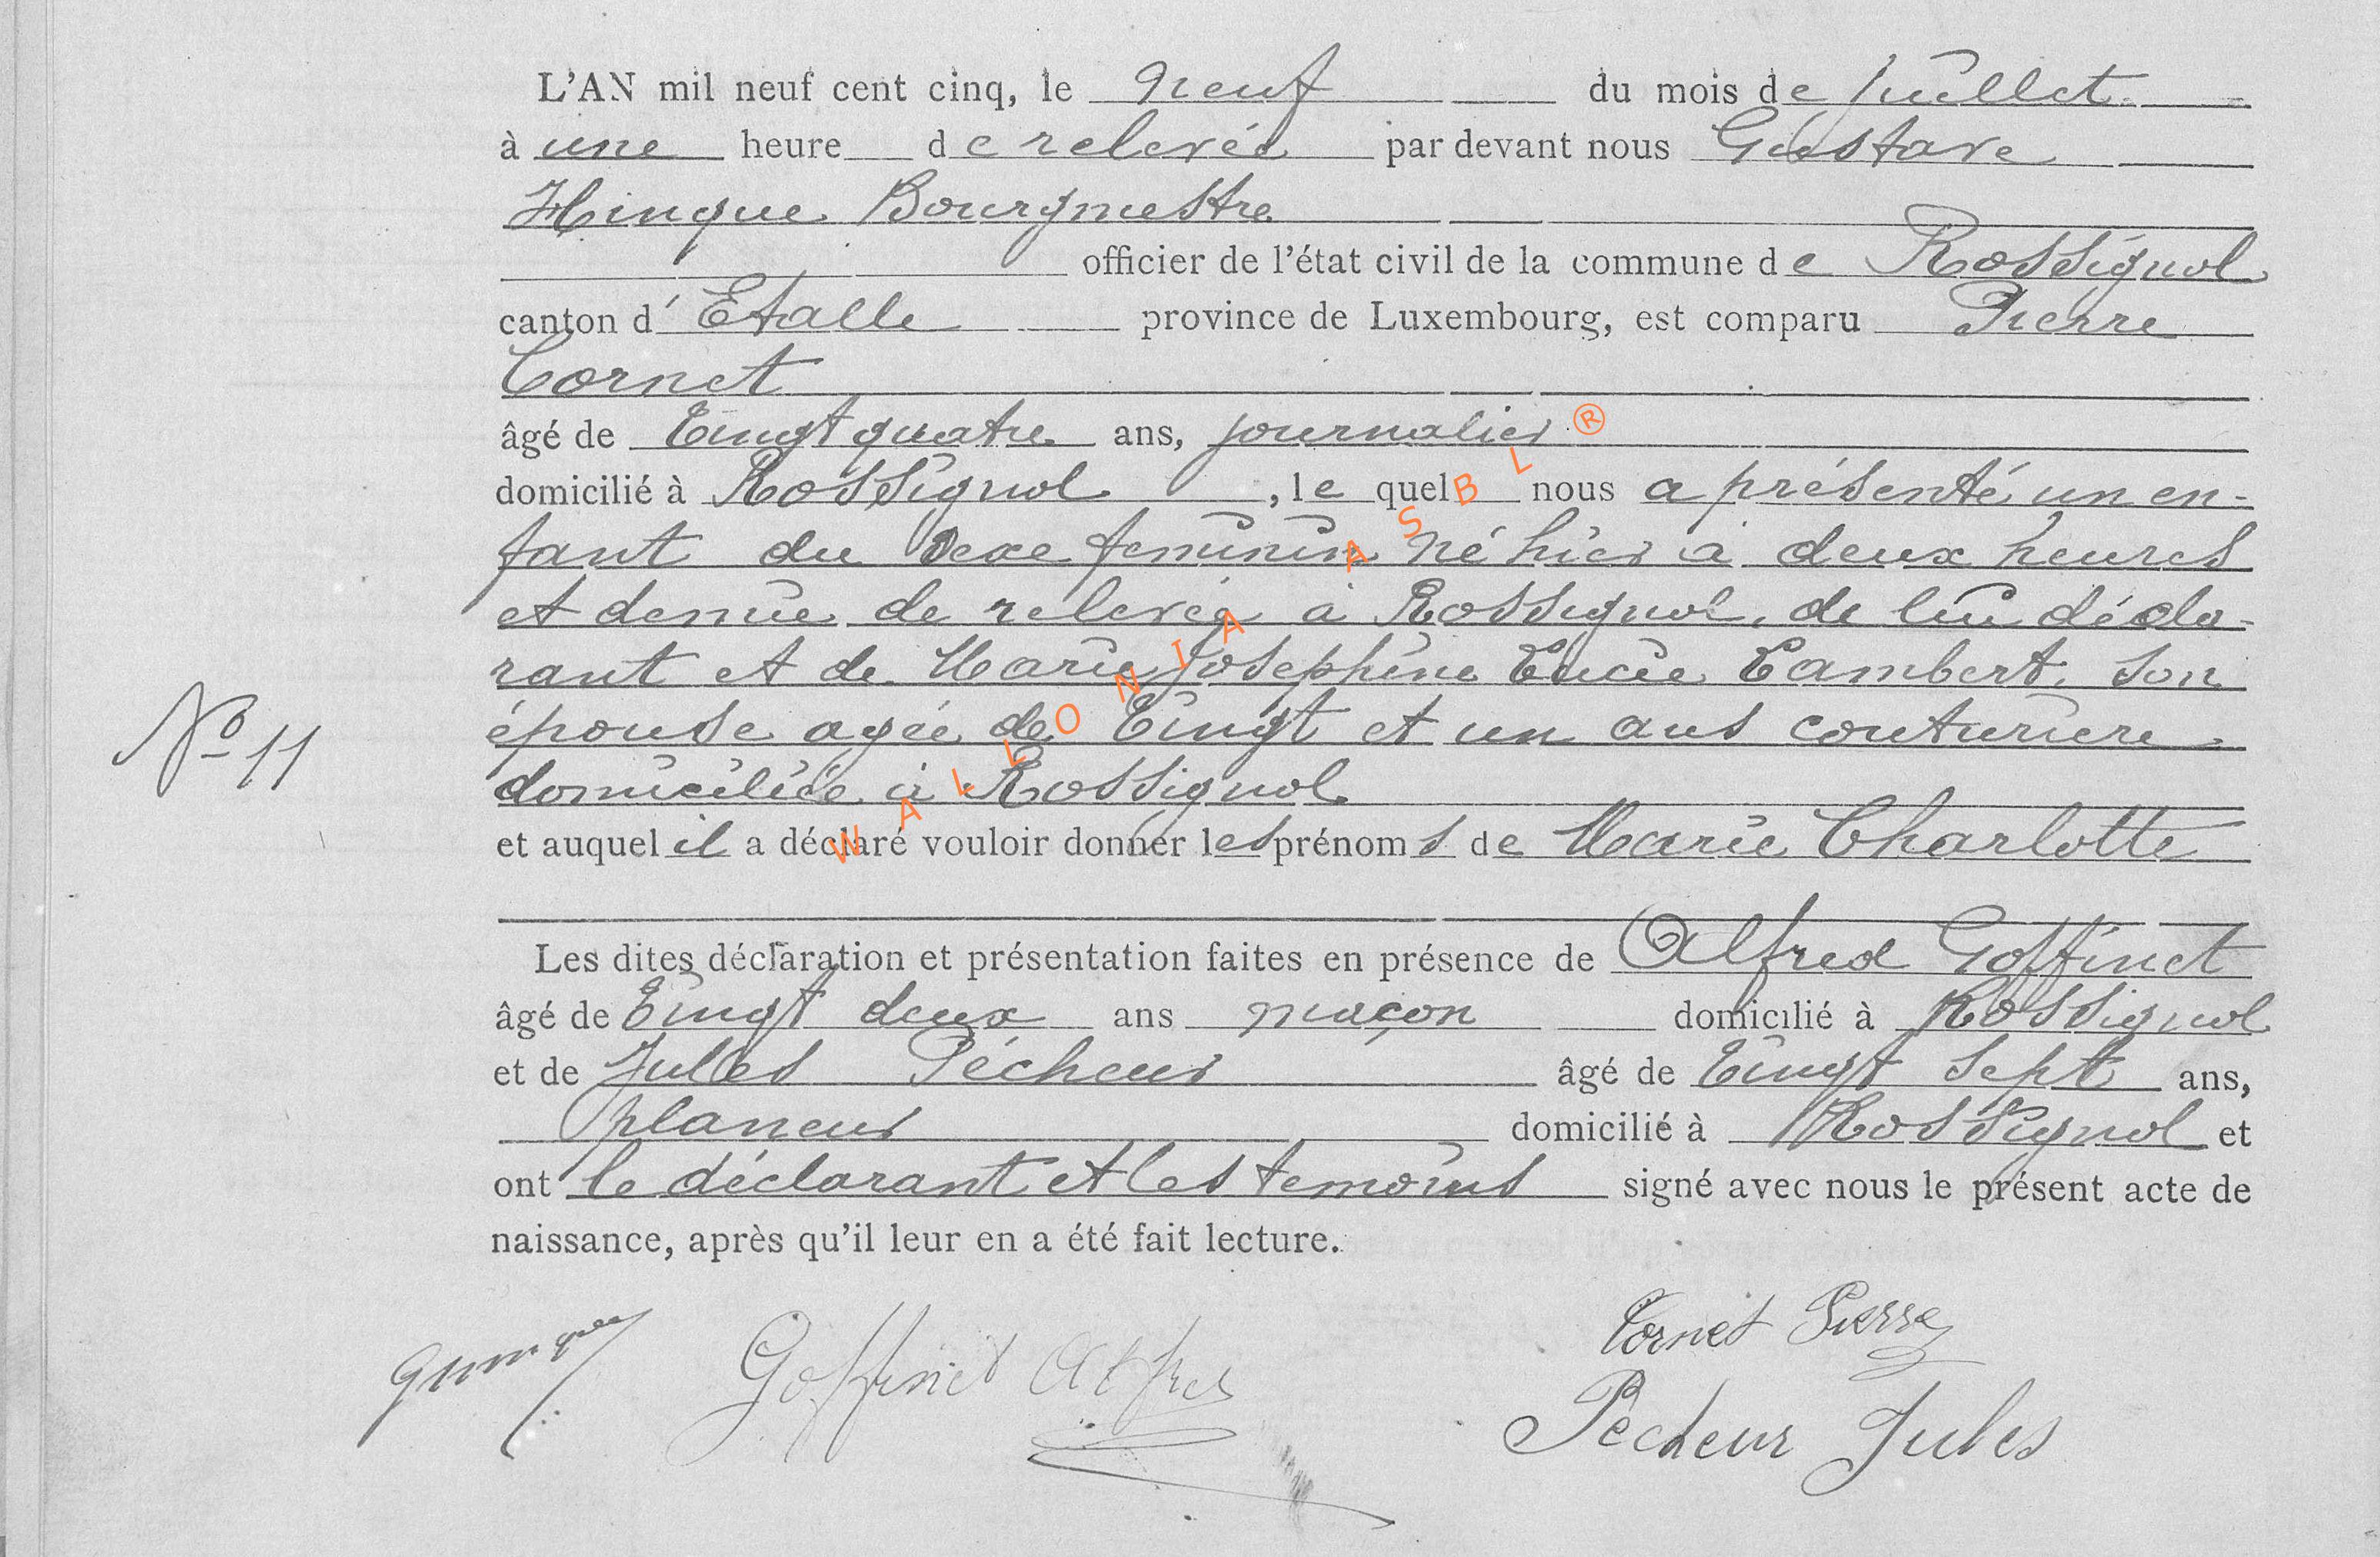 L'AN mil neuf cent cinq, le neuf du mois de Juillet
à une heure de relevée par devant nous Gustave
Hinque Bourgmestre
officier de l'état civil de la commune de Rossignol
canton d'Etalle province de Luxembourg, est comparu Pierre
Cornet
âgé de Vingt quatre ans, journalier
domicilié à Rossignol, le quel nous a présenté un en-
fant du sexe feminin né hier à deux heures
et demie de relevée à Rossignol, de lui décla-
rant et de Marie Josephine Lucie Lambert, son
épouse agée de Vingt et un ans couturiere
domiciliée à Rossignol
N° 11
et auquel il a déclaré vouloir donner les prénoms de Marie Charlotte
Les dites déclaration et présentation faites en présence de Alfred Goffinet
âgé de Vingt deux ans maçon domicilié à Rossignol
et de Jules Pécheur âgé de Vingt sept ans,
planeur domicilié à Rossignol et
ont le déclarant et les temoins signé avec nous le présent acte de
naissance, après qu'il leur en a été fait lecture.
Goffinet Alfred
Cornet Pierre
Pecheur Jules
WALLONIA ASBL ®